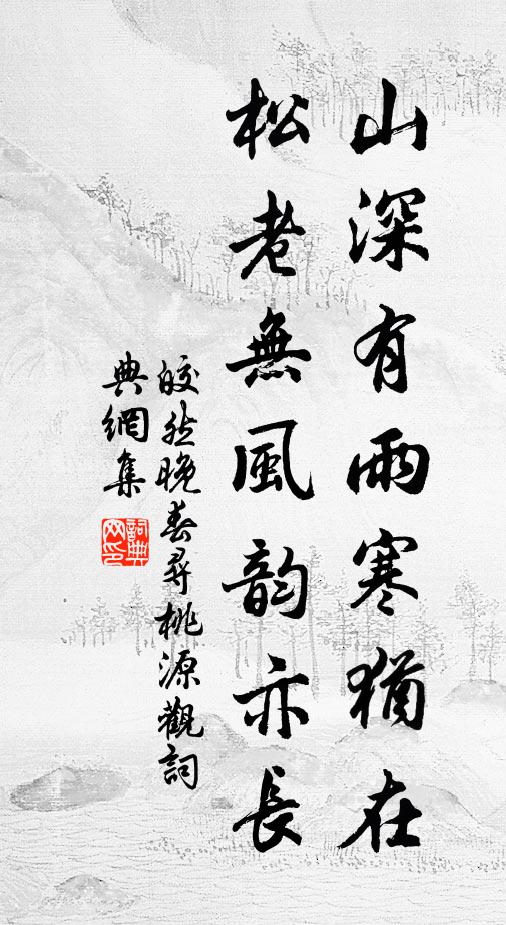 山深有雨寒猶在
松老無風韵亦長
皎然晚春尋桃源觀詞
典網集
詞典网印